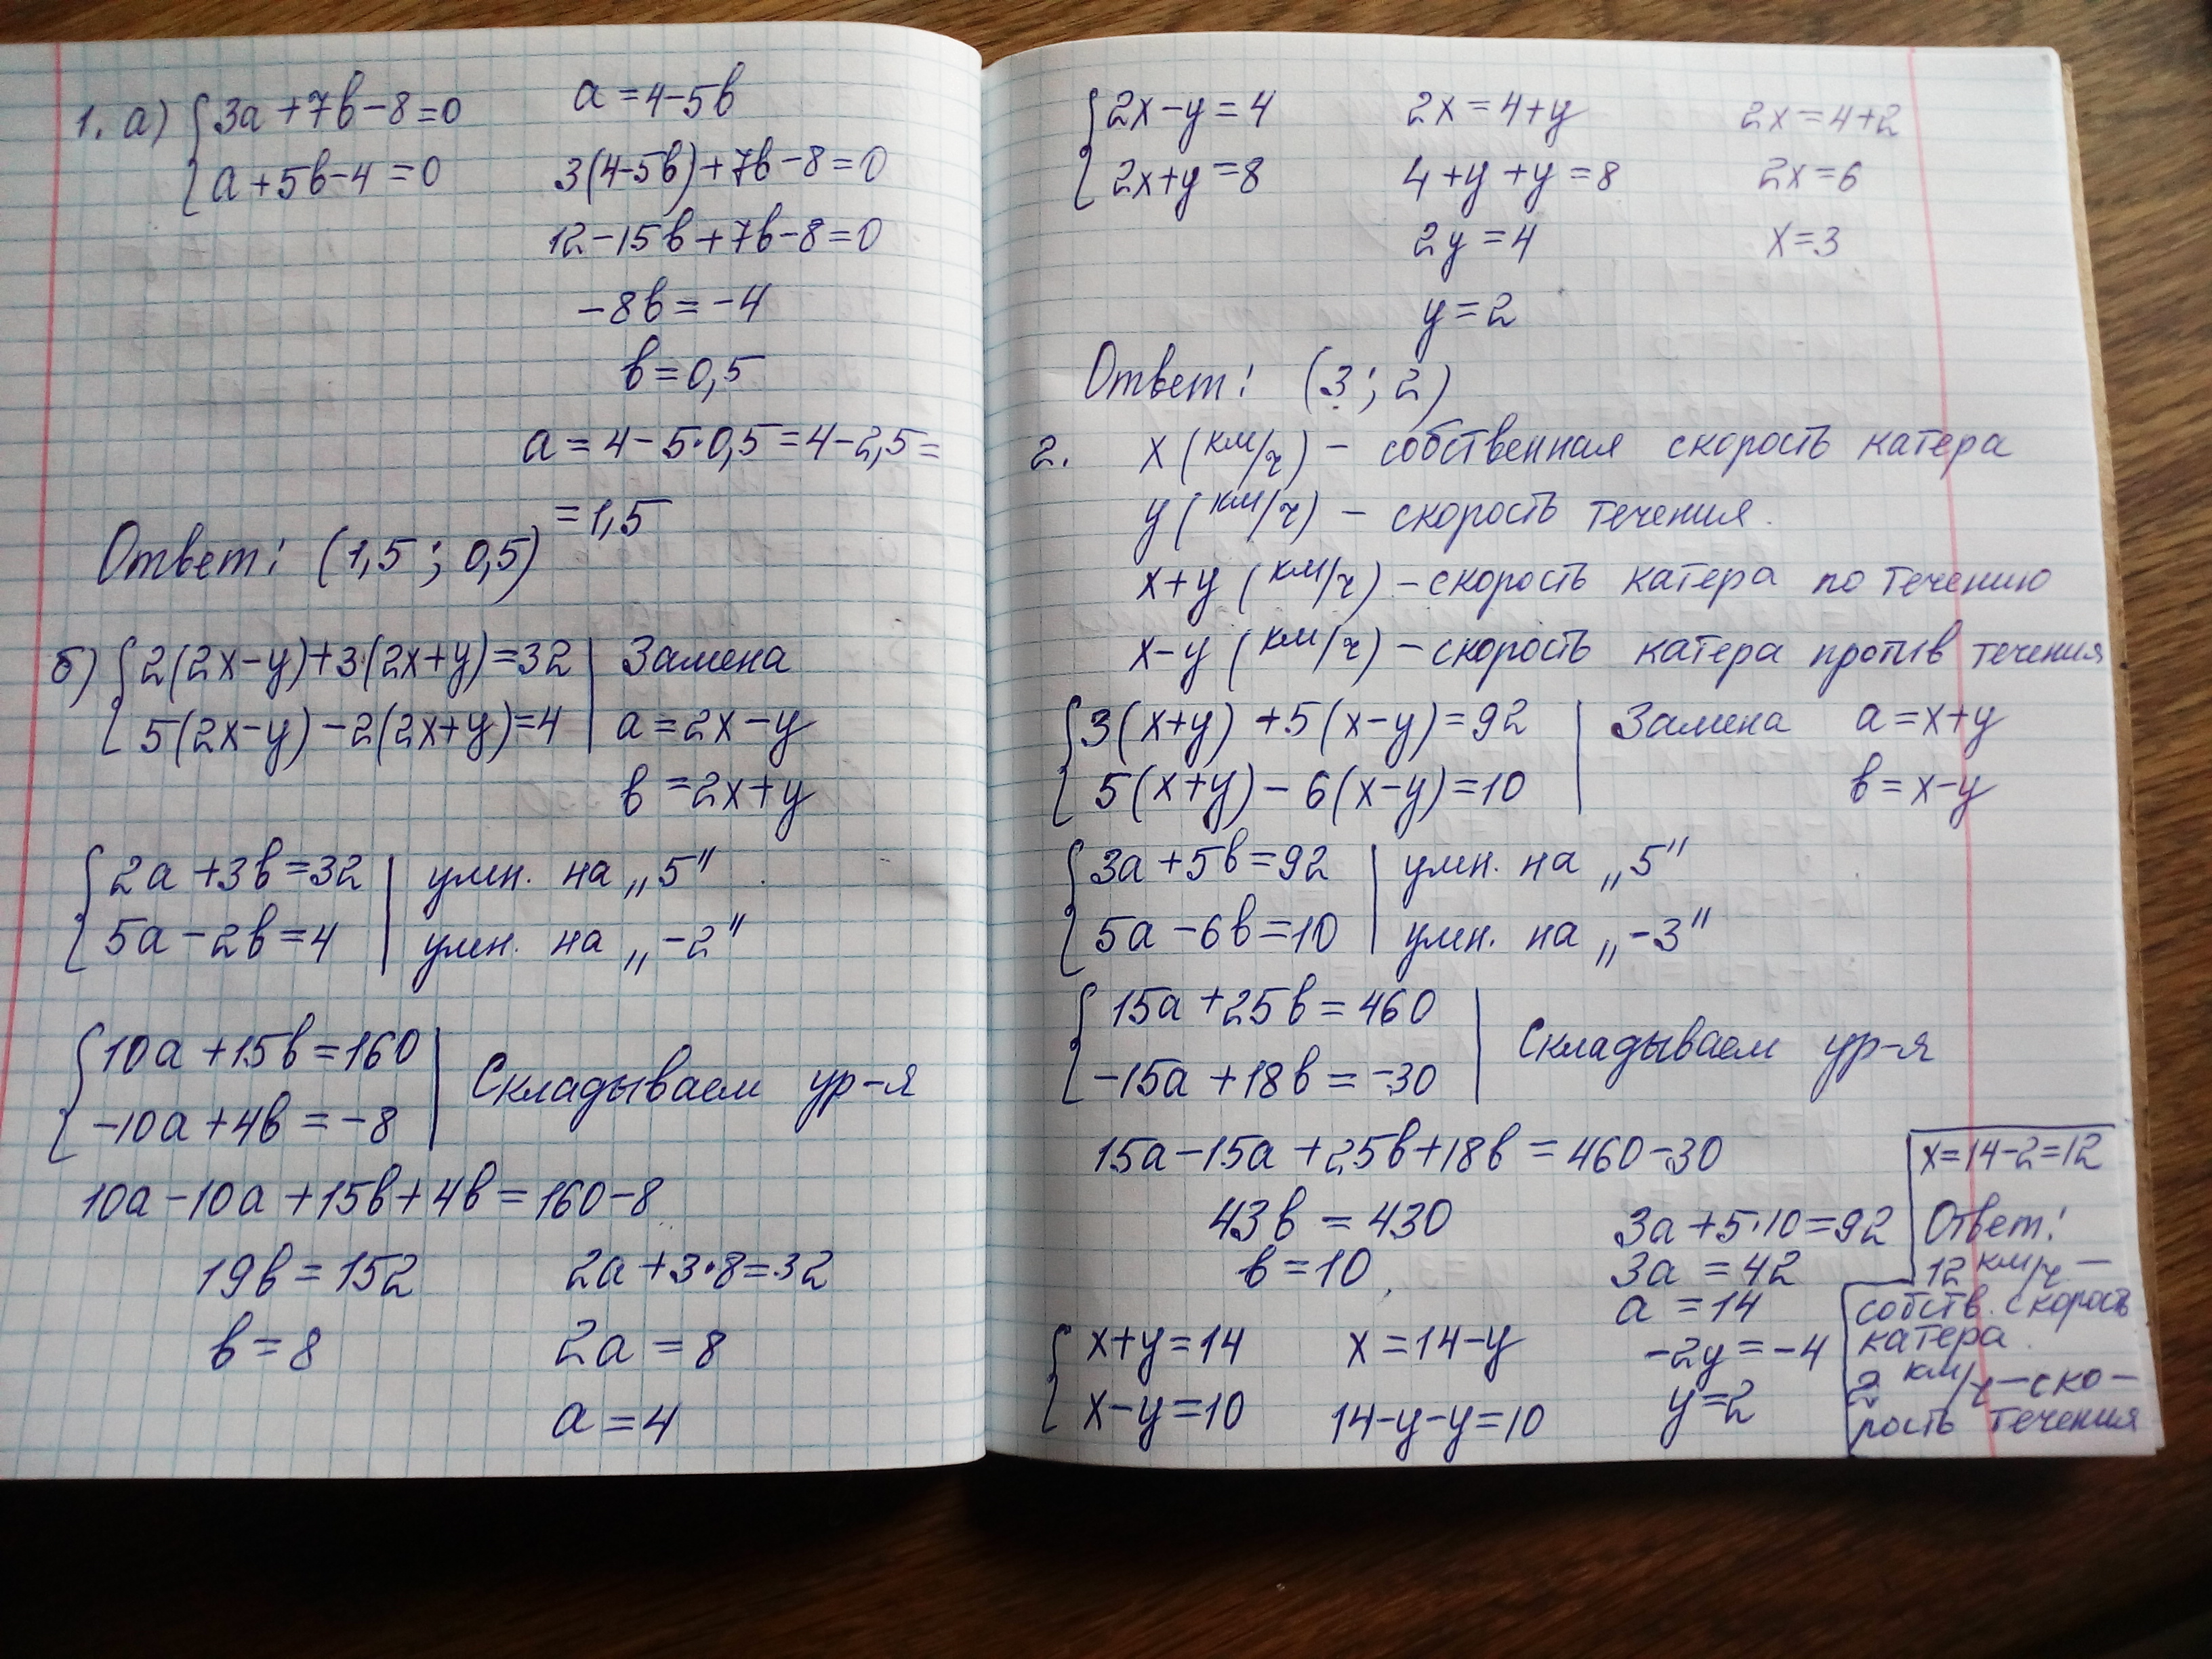 1. а) {3a+7b-8=0
a+5b-4=0
a=4-5b
3(4-5b)+7b-8=0
12-15b+7b-8=0
-8b=-4
b=0,5
a=4-5·0,5=4-2,5=
=1,5
Ответ: (1,5; 0,5)
б) {2(2x-y)+3(2x+y)=32 | Замена
5(2x-y)-2(2x+y)=4 | a=2x-y
b=2x+y
{2a+3b=32 | умн. на „5"
5a-2b=4 | умн. на „-2"
{10a+15b=160
-10a+4b=-8 | Складываем ур-я
10a-10a+15b+4b=160-8
19b=152
b=8
2a+3·8=32
2a=8
a=4
{2x-y=4
2x+y=8
2x=4+y
4+y+y=8
2y=4
y=2
2x=4+2
2x=6
x=3
Ответ: (3; 2)
2. x (км/ч) - собственная скорость катера
y (км/ч) - скорость течения.
x+y (км/ч) - скорость катера по течению
x-y (км/ч) - скорость катера против течения
{3(x+y)+5(x-y)=92 | Замена a=x+y
5(x+y)-6(x-y)=10 | b=x-y
{3a+5b=92 | умн. на „5"
5a-6b=10 | умн. на „-3"
{15a+25b=460
-15a+18b=-30 | Складываем ур-я
15a-15a+25b+18b=460-30
43b=430
b=10
3a+5·10=92
3a=42
a=14
{x+y=14
x-y=10
x=14-y
14-y-y=10
-2y=-4
y=2
x=14-2=12
Ответ:
12 км/ч —
собств. скорость
катера.
2 км/ч — ско-
рость течения